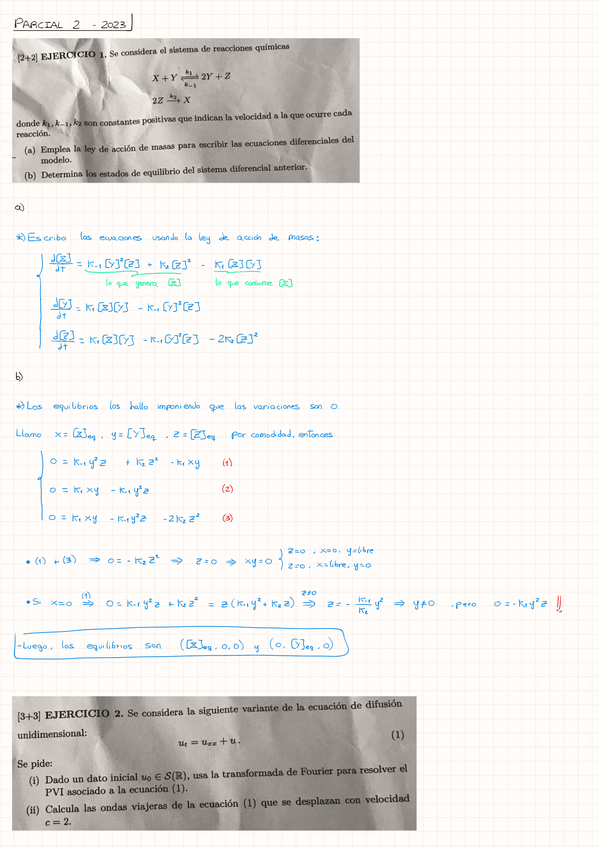 PARCIAL 2 - 2023
[2+2] EJERCICIO 1. Se considera el sistema de reacciones químicas
X + Y ⇌ 2Y + Z (k₁, k₋₁)
2Z →(k₂) X
donde k₁, k₋₁, k₂ son constantes positivas que indican la velocidad a la que ocurre cada
reacción.
(a) Emplea la ley de acción de masas para escribir las ecuaciones diferenciales del
modelo.
(b) Determina los estados de equilibrio del sistema diferencial anterior.
a)
*) Escribo las ecuaciones usando la ley de acción de masas:
d[X]/dt = K₋₁[Y]²[Z] + K₂[Z]² - K₁[X][Y]
lo que genera [X] lo que consume [X]
d[Y]/dt = K₁[X][Y] - K₋₁[Y]²[Z]
d[Z]/dt = K₁[X][Y] - K₋₁[Y]²[Z] - 2K₂[Z]²
b)
*) Los equilibrios los hallo imponiendo que las variaciones son 0.
Llamo x = [X]eq, y = [Y]eq, z = [Z]eq por comodidad, entonces:
0 = K₋₁y²z + K₂z² - K₁xy (1)
0 = K₁xy - K₋₁y²z (2)
0 = K₁xy - K₋₁y²z - 2K₂z² (3)
• (1) + (3) ⇒ 0 = -K₂z² ⇒ z=0 ⇒ xy=0 { z=0, x=0, y=libre
z=0, x=libre, y=0
• Si x=0 ⇒(1) 0 = K₋₁y²z + K₂z² = z(K₋₁y² + K₂z) ⇒(z≠0) z = - K₋₁/K₂ y² ⇒ y≠0, pero 0=-K₋₁y²z !!
-Luego, los equilibrios son ([X]eq, 0, 0) y (0, [Y]eq, 0)
[3+3] EJERCICIO 2. Se considera la siguiente variante de la ecuación de difusión
unidimensional:
uₜ = uₓₓ + u. (1)
Se pide:
(i) Dado un dato inicial u₀ ∈ S(ℝ), usa la transformada de Fourier para resolver el
PVI asociado a la ecuación (1).
(ii) Calcula las ondas viajeras de la ecuación (1) que se desplazan con velocidad
c = 2.